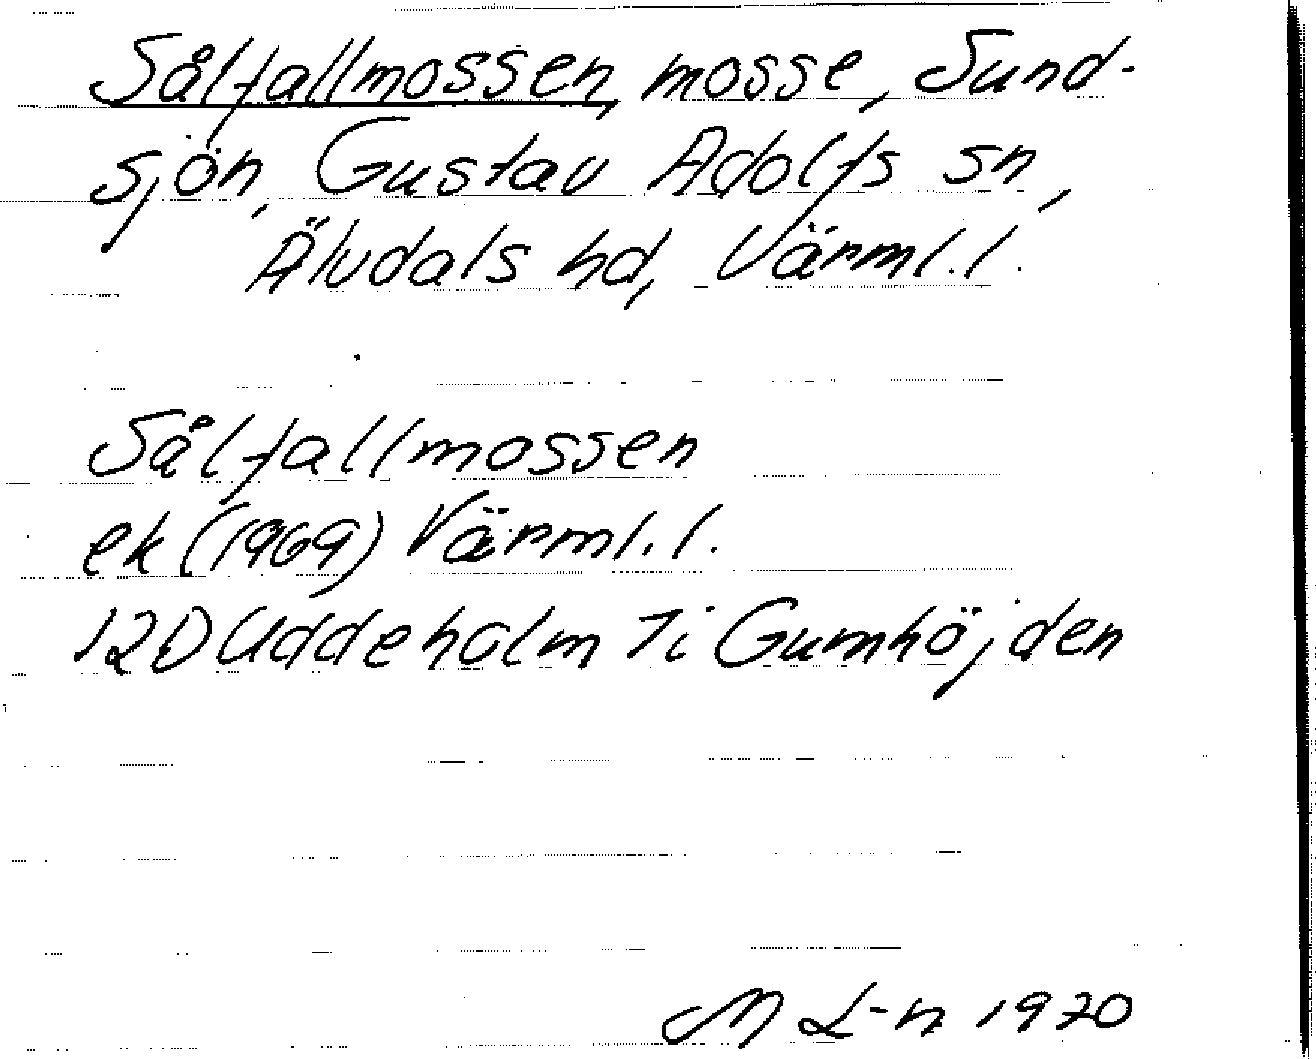 Sålfallmossen, mosse, Sund-
sjön, Gustav Adolfs sn,
Älvdals hd, Värml. l.
Sålfallmossen
ek (1969) Värml. l.
12D Uddeholm 7i Gumhöjden
M L-n 1970